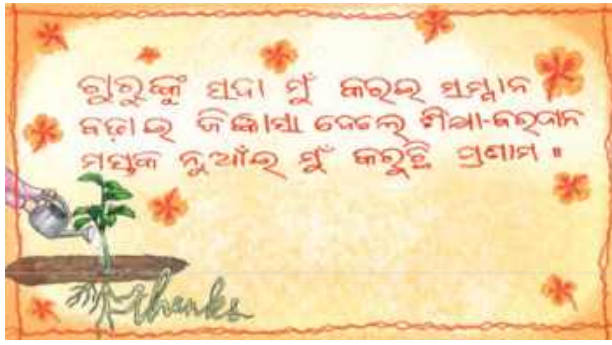 ଗୁରୁଙ୍କୁ ସଦା ମୁଁ କରଇ ସମ୍ମାନ
ବଢ଼ାଇ ଜିଜ୍ଞାସା ଦେଲେ ଶିକ୍ଷା-ବରଦାନ
ମସ୍ତକ ନୁଆଁଇ ମୁଁ କରୁଛି ପ୍ରଣାମ ॥
thanks